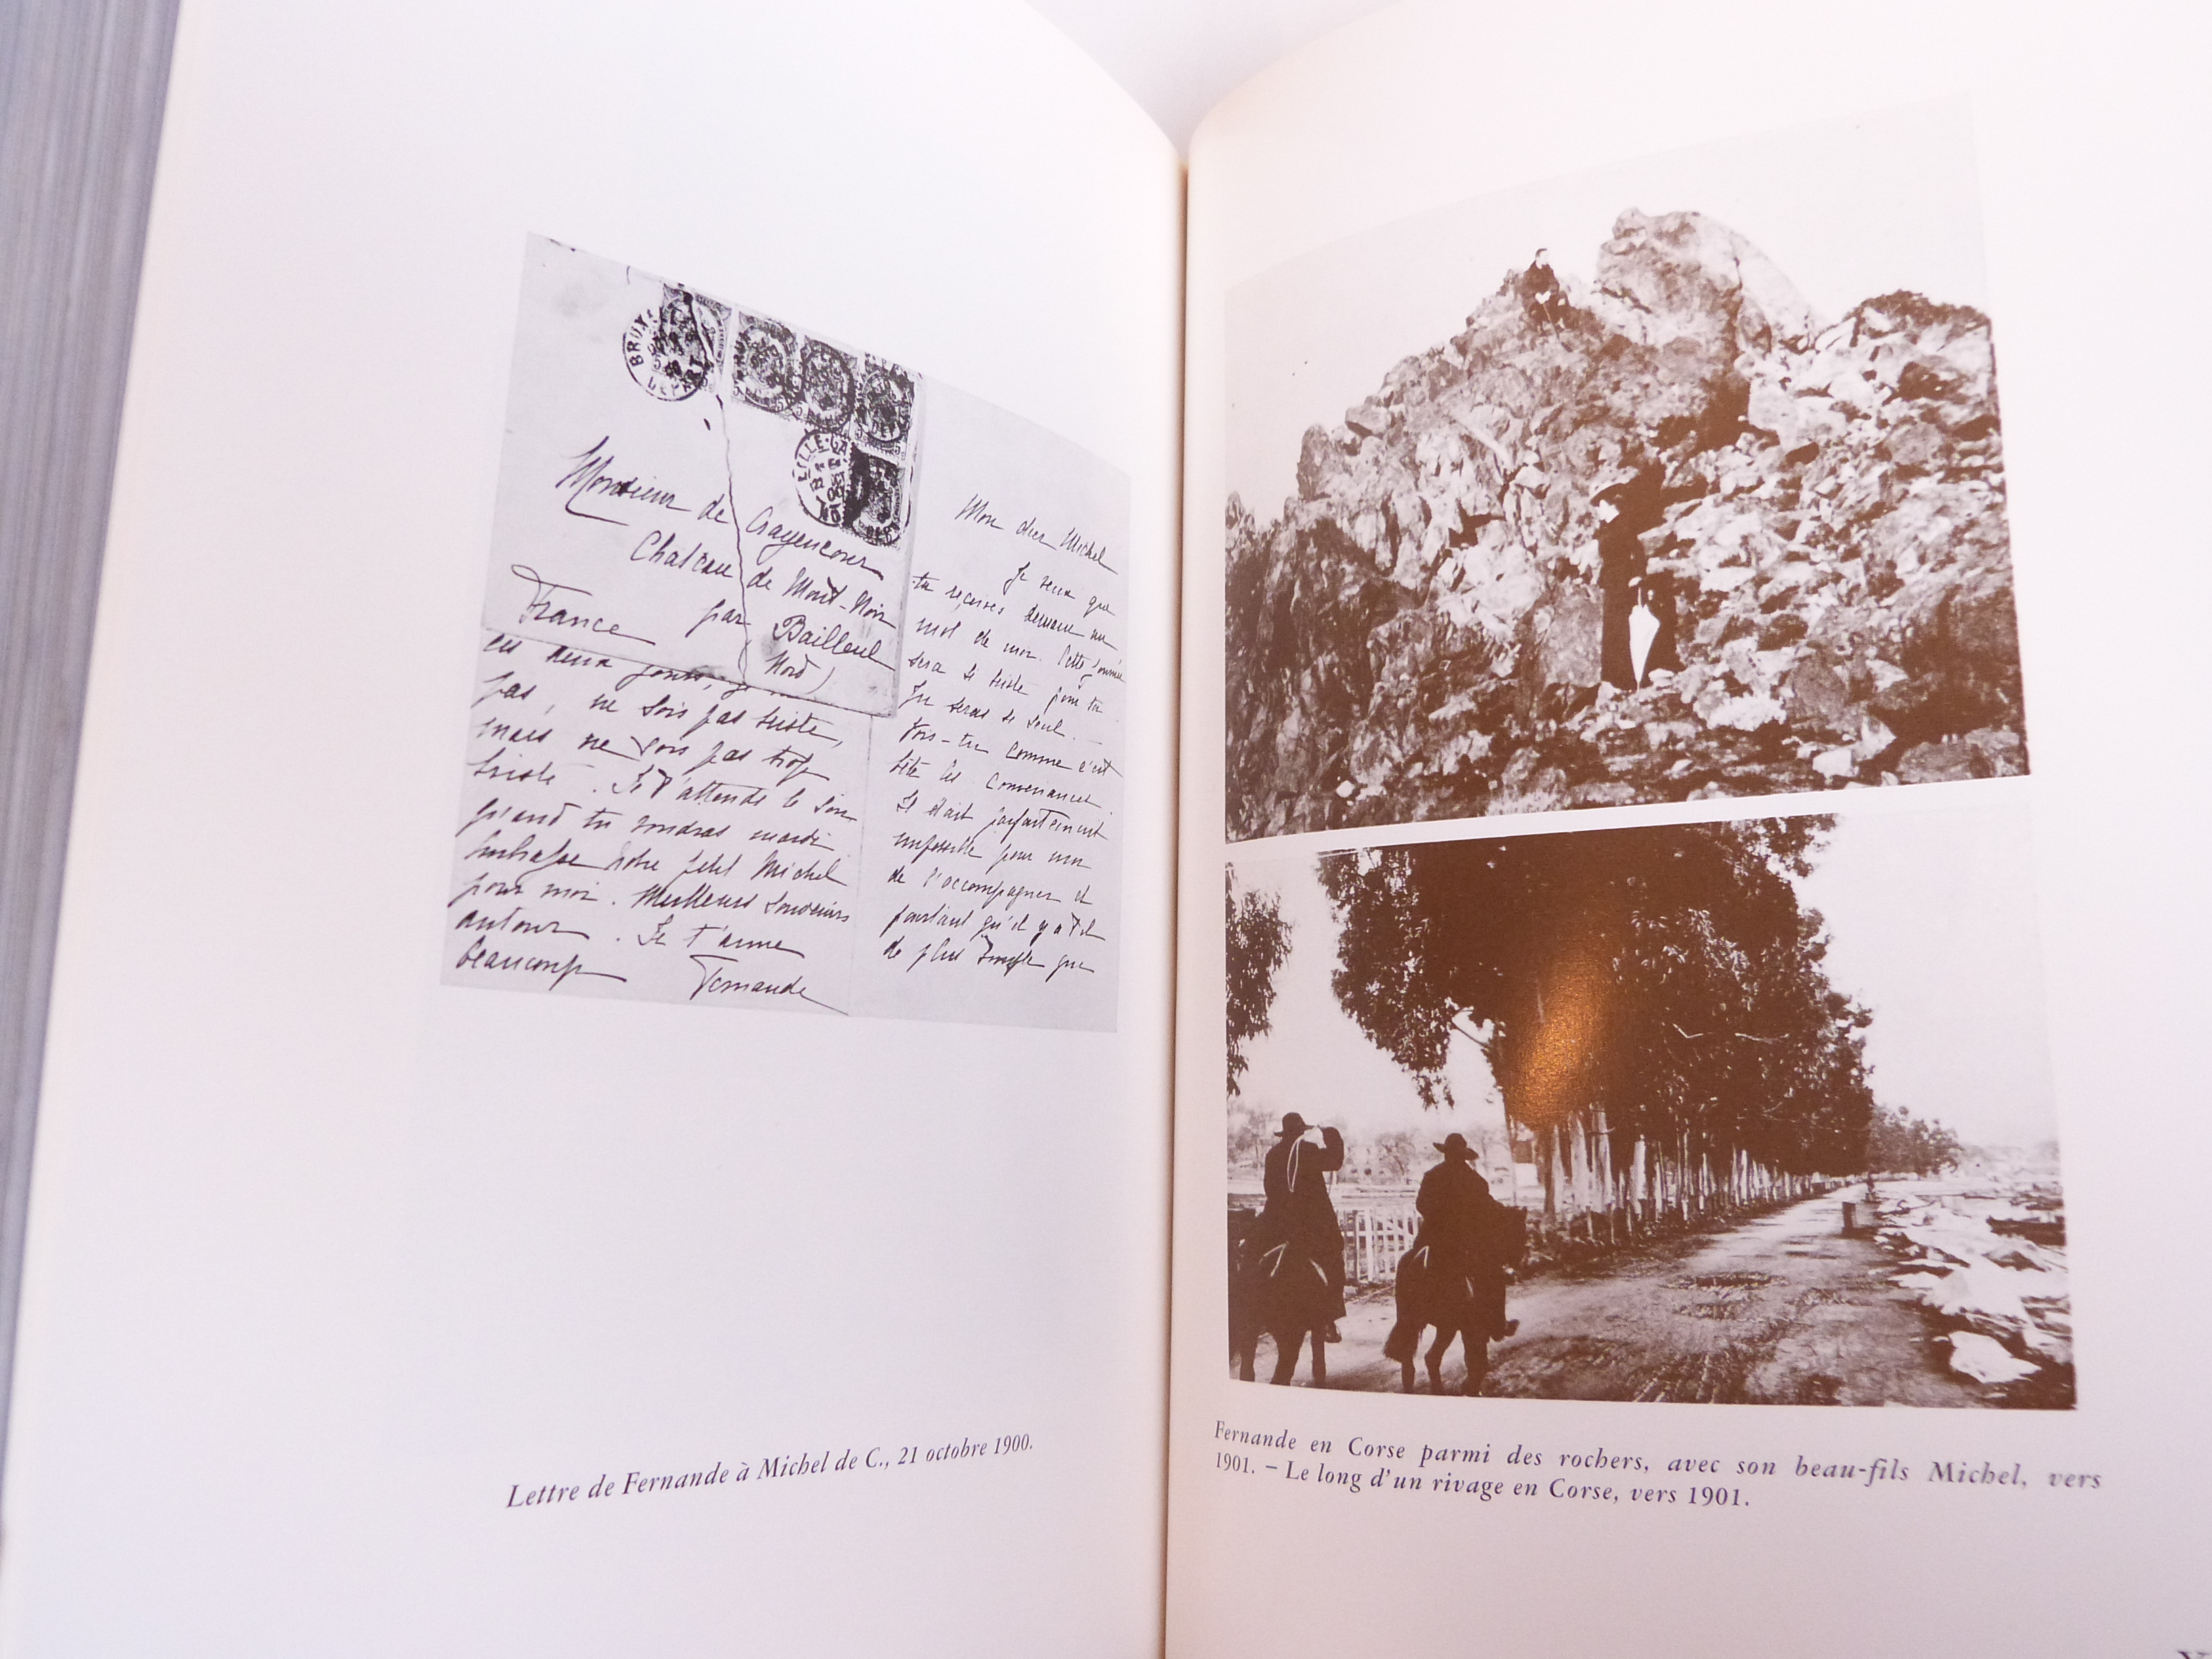 BRUX
DEPART
LILLE-GA
Monsieur de Crayencour
Chateau de Mont-Noir
par Bailleul
France (Nord)
en deux jours,
pas, ne sois pas triste,
mais ne sois pas trop
triste. Je t'attends le
quand tu voudras mardi
Embrasse notre petit Michel
pour moi. Meilleurs souvenirs
autour. Je t'aime
beaucoup Fernande
Mon cher Michel
Je veux que
tu reçoives demain un
mot de moi. Cette journée
sera si triste pour toi
Tu seras si seul. —
Vois-tu comme c'est
bête les convenances.
Il était parfaitement
impossible pour moi
de t'accompagner et
pourtant qu'y a-t-il
de plus simple que
Lettre de Fernande à Michel de C., 21 octobre 1900.
Fernande en Corse parmi des rochers, avec son beau-fils Michel, vers
1901. – Le long d'un rivage en Corse, vers 1901.